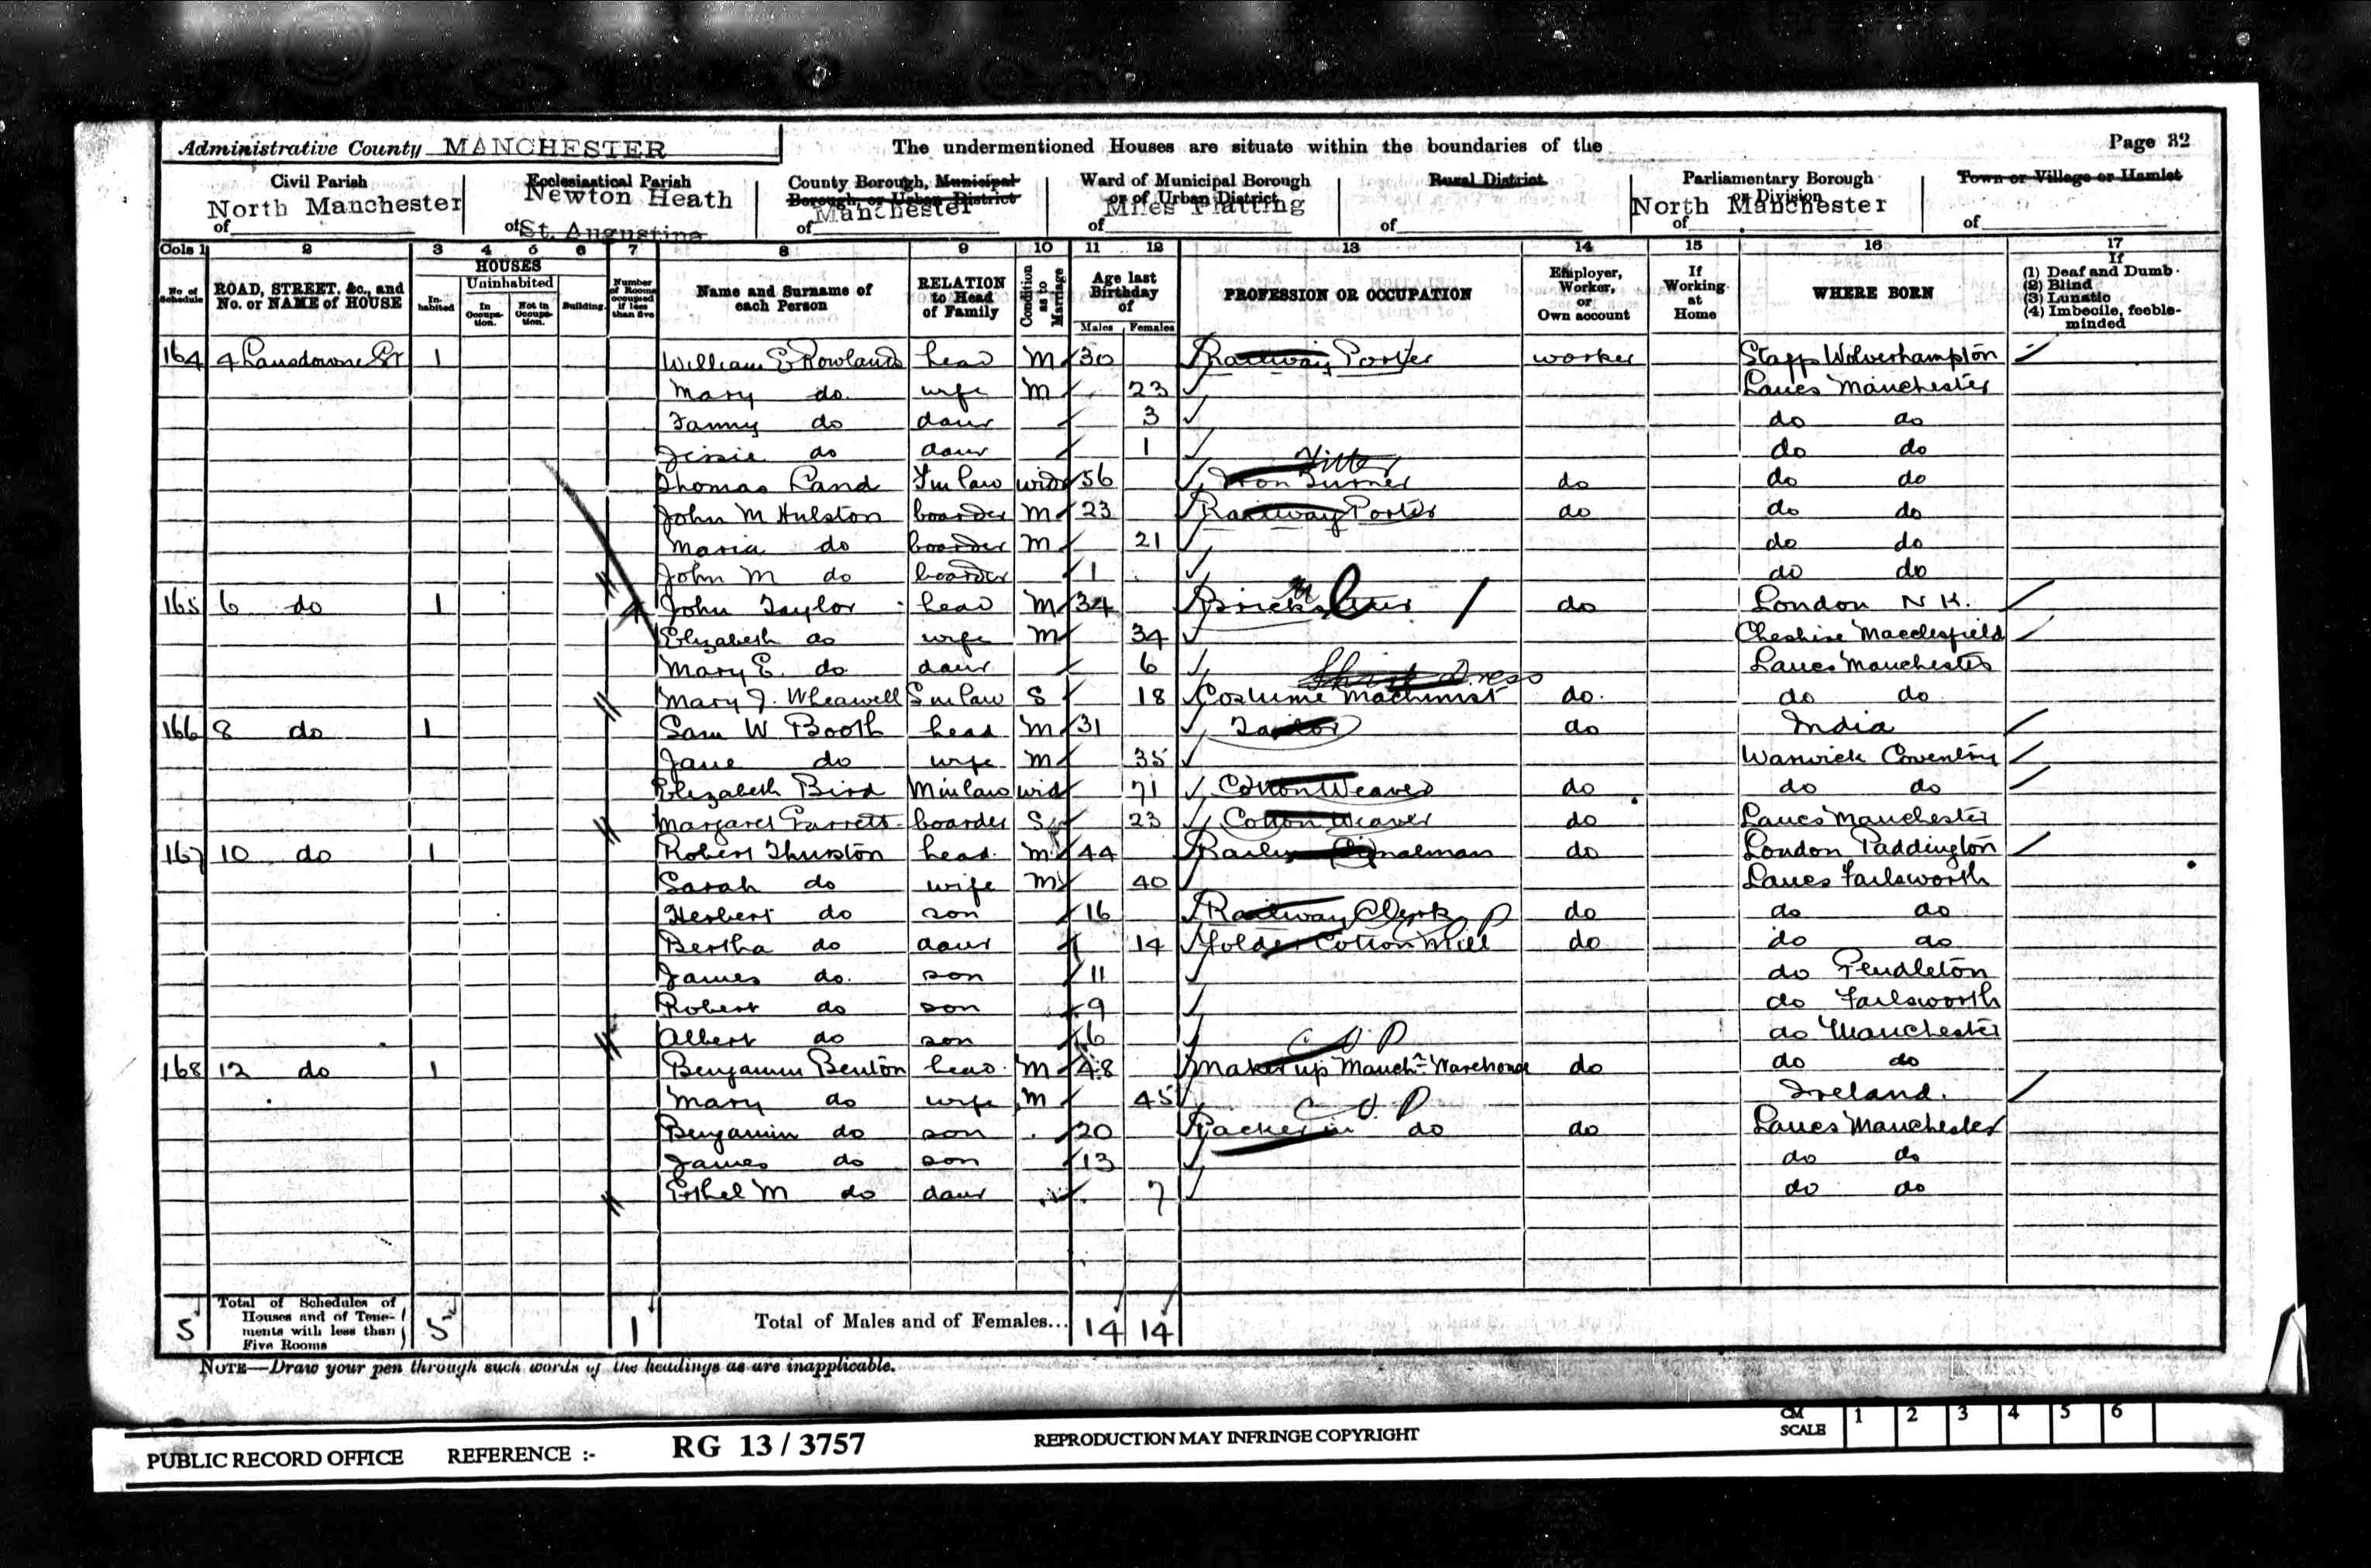 Administrative County MANCHESTER
The undermentioned Houses are situate within the boundaries of the
Page 32
Civil Parish
North Manchester
of
Ecclesiastical Parish
Newton Heath
of St. Augustine
County Borough, Municipal
Borough, or Urban District
Manchester
of
Ward of Municipal Borough
or of Urban District
Miles Platting
of
Rural District
of
Parliamentary Borough
or Division
North Manchester
of
Town or Village or Hamlet
of
Cols 1 2 3 4 5 6 7 8 9 10 11 12 13 14 15 16 17
No. of Schedule
ROAD, STREET, &c., and No. or NAME of HOUSE
HOUSES
Inhabited
Uninhabited
In Occupation.
Not in Occupation.
Building.
Number of Rooms occupied if less than five
Name and Surname of each Person
RELATION to Head of Family
Condition as to Marriage
Age last Birthday of
Males Females
PROFESSION OR OCCUPATION
Employer, Worker, or Own account
If Working at Home
WHERE BORN
If
(1) Deaf and Dumb
(2) Blind
(3) Lunatic
(4) Imbecile, feeble-minded
164 4 Lansdowne Gr 1 William E Rowlands head M 30 Railway Porter worker Staffs Wolverhampton
Mary do wife M 23 Lancs Manchester
Fanny do daur 3 do do
Jessie do daur 1 do do
Fitter
Thomas Land F in law wid 56 Iron Turner do do do
John M Hulston boarder M 23 Railway Porter do do do
Maria do boarder M 21 do do
John M do boarder 1 do do
165 6 do 1 4 John Taylor head M 34 do London N K.
Elizabeth do wife M 34 Cheshire Macclesfield
Mary E. do daur 6 Lancs Manchester
Dress
Mary J. Wheawell S in law S 18 Costume Machinist do. do do
166 8 do 1 Sam W Booth head M 31 Tailor do India
Jane do wife M 35 Warwick Coventry
Elizabeth Bird M in law wid 71 Cotton Weaver do do do
Margaret Garrett boarder S 23 Cotton Weaver do Lancs Manchester
167 10 do 1 Robert Thurston head. M 44 Railway Signalman do London Paddington
Sarah do wife M 40 Lancs Failsworth
Herbert do son 16 Railway Clerk P do do do
Bertha do daur 14 Folder Cotton Mill do do do
James do. son 11 do Pendleton
Robert do son 9 do Failsworth
Albert do son 6 do Manchester
168 12 do 1 Benjamin Benton head. M 48 Maker up Manchr Warehouse do do do
Mary do wife M 45 Ireland.
Benjamin do son 20 Packer in do do Lancs Manchester
James do son 13 do do
Ethel M do daur 7 do do
5 Total of Schedules of Houses and of Tenements with less than Five Rooms 5 1 Total of Males and of Females... 14 14
NOTE—Draw your pen through such words of the headings as are inapplicable.
PUBLIC RECORD OFFICE REFERENCE :- RG 13 / 3757 REPRODUCTION MAY INFRINGE COPYRIGHT
CM SCALE 1 2 3 4 5 6